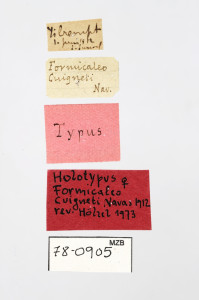 Formicaleo
Cuigneti
Nav.
Typus
Holotypus ♀
Formicaleo
Cuigneti Navas 1912
rev. Hölzel 1973
MZB
78-0905